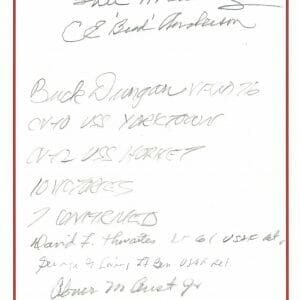 C E "Bud" Anderson
Buck Dungan VFND 76
CV-10 USS YORKTOWN
CV-12 USS HORNET
10 VICTORIES
7 CONFIRMED
David F. Thwaites Lt Col USAF Ret.
George G. Gen USAF Ret
Abner M Aust Jr